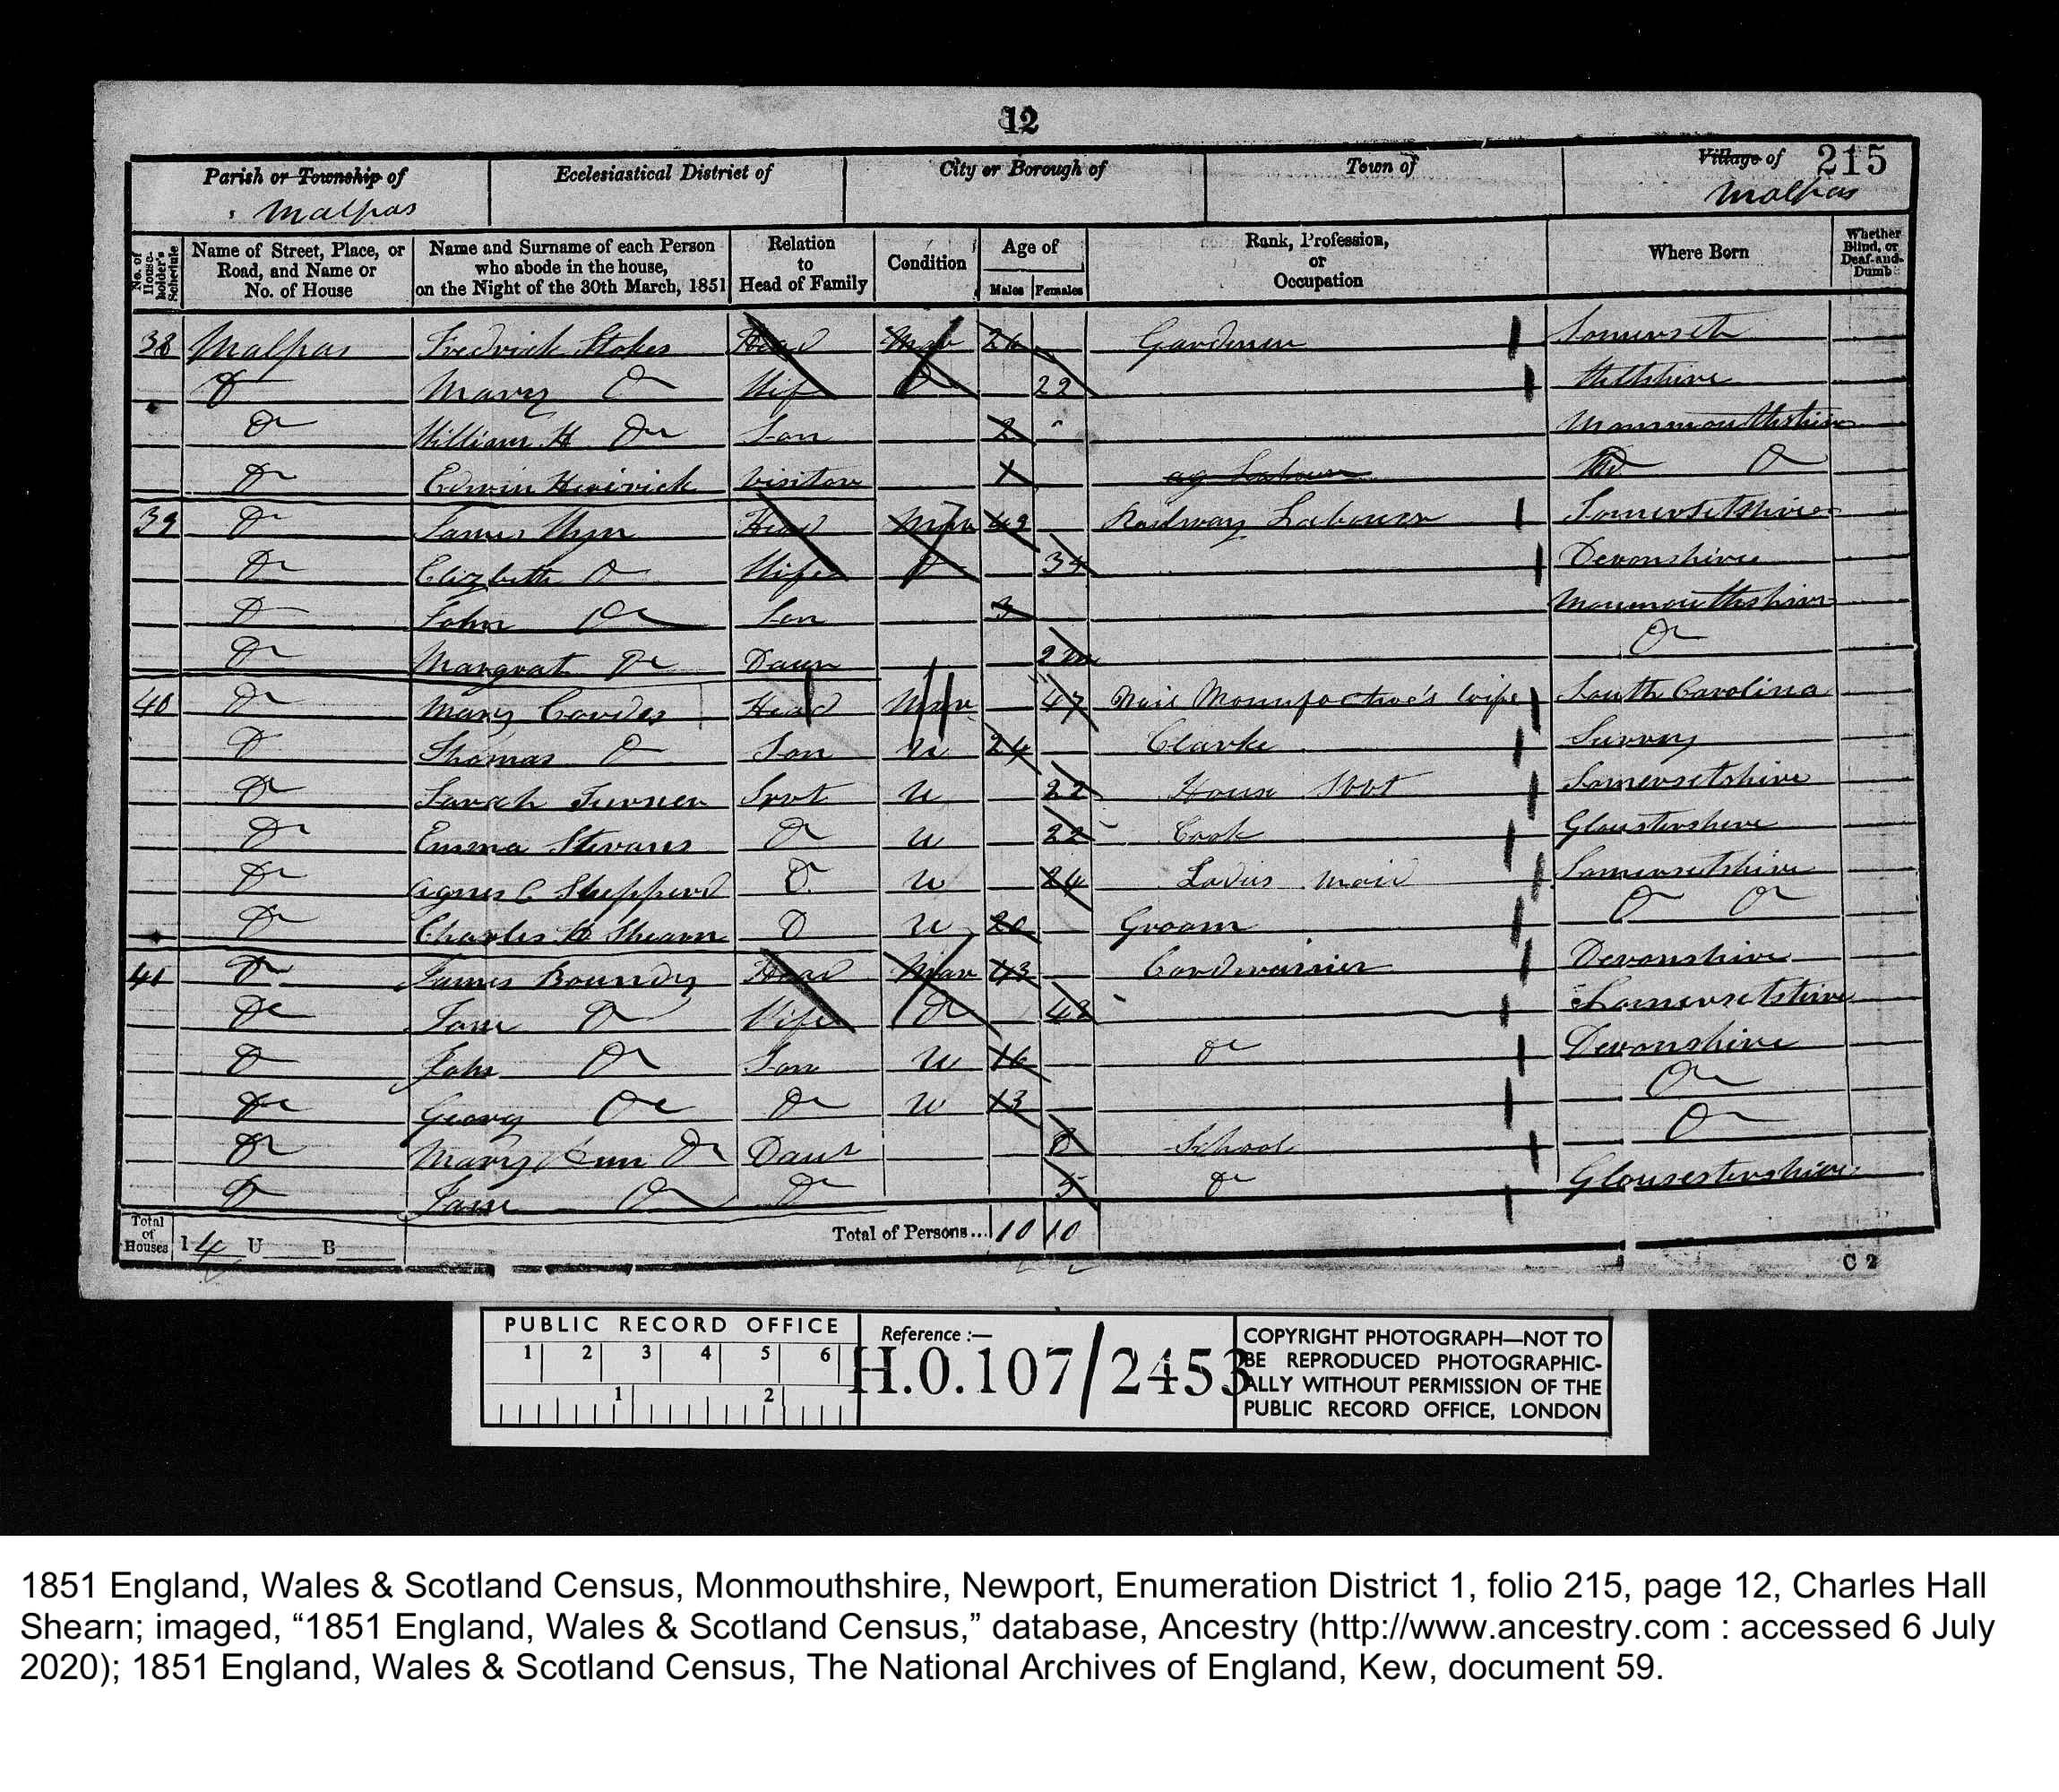 12
Parish or Township of Ecclesiastical District of City or Borough of Town of Village of 215
Malpas Malpas
No. of House-holder's Schedule Name of Street, Place, or Road, and Name or No. of House Name and Surname of each Person who abode in the house, on the Night of the 30th March, 1851 Relation to Head of Family Condition Age of Males Females Rank, Profession, or Occupation Where Born Whether Blind, or Deaf-and-Dumb
38 Malpas Fredrick Stokes Head Mar 26 Gardener Somerseth
Do Mary Do Wife Do 22 Wiltshire
Do William H Do Son 2 Monmouthshire
Do Edwin Visitor ag Labour Do
39 Do James Head Mar 49 Railway Labourer Somersetshire
Do Elizbeth Do Wife Do Devonshire
Do John Do Son 3 Monmouthshire
Do Margrat Do Daur Do
40 Do Mary Cordes Head Mar 47 Nail Wife South Carolina
Do Thomas Do Son U 24 Clarke Surrey
Do Sarah Turner Srvt U 22 House Somersetshire
Do Emma Stevans Do U 22 Cook
Do Agnes C Shepperd Do U 24 Ladies Maid Somersetshire
Do Charles H Shearn Do U 20 Groom Do Do
41 Do James Boundy Head Mar 43 Cordwainer Devonshire
Do Jane Do Wife Do 42 Somersetshire
Do John Do Son U 16 Do Devonshire
Do Georg Do Do U 13 Do
Do Mary Ann Do Daur 8 School Do
Do Jane Do Do 5 Do Glousestershire
Total of Houses I 4 U B Total of Persons... 10 10
C 2
PUBLIC RECORD OFFICE
1 2 3 4 5 6
1 2
Reference :—
H.O.107/2453
COPYRIGHT PHOTOGRAPH—NOT TO
BE REPRODUCED PHOTOGRAPHIC-
ALLY WITHOUT PERMISSION OF THE
PUBLIC RECORD OFFICE, LONDON
1851 England, Wales & Scotland Census, Monmouthshire, Newport, Enumeration District 1, folio 215, page 12, Charles Hall
Shearn; imaged, “1851 England, Wales & Scotland Census,” database, Ancestry (http://www.ancestry.com : accessed 6 July
2020); 1851 England, Wales & Scotland Census, The National Archives of England, Kew, document 59.